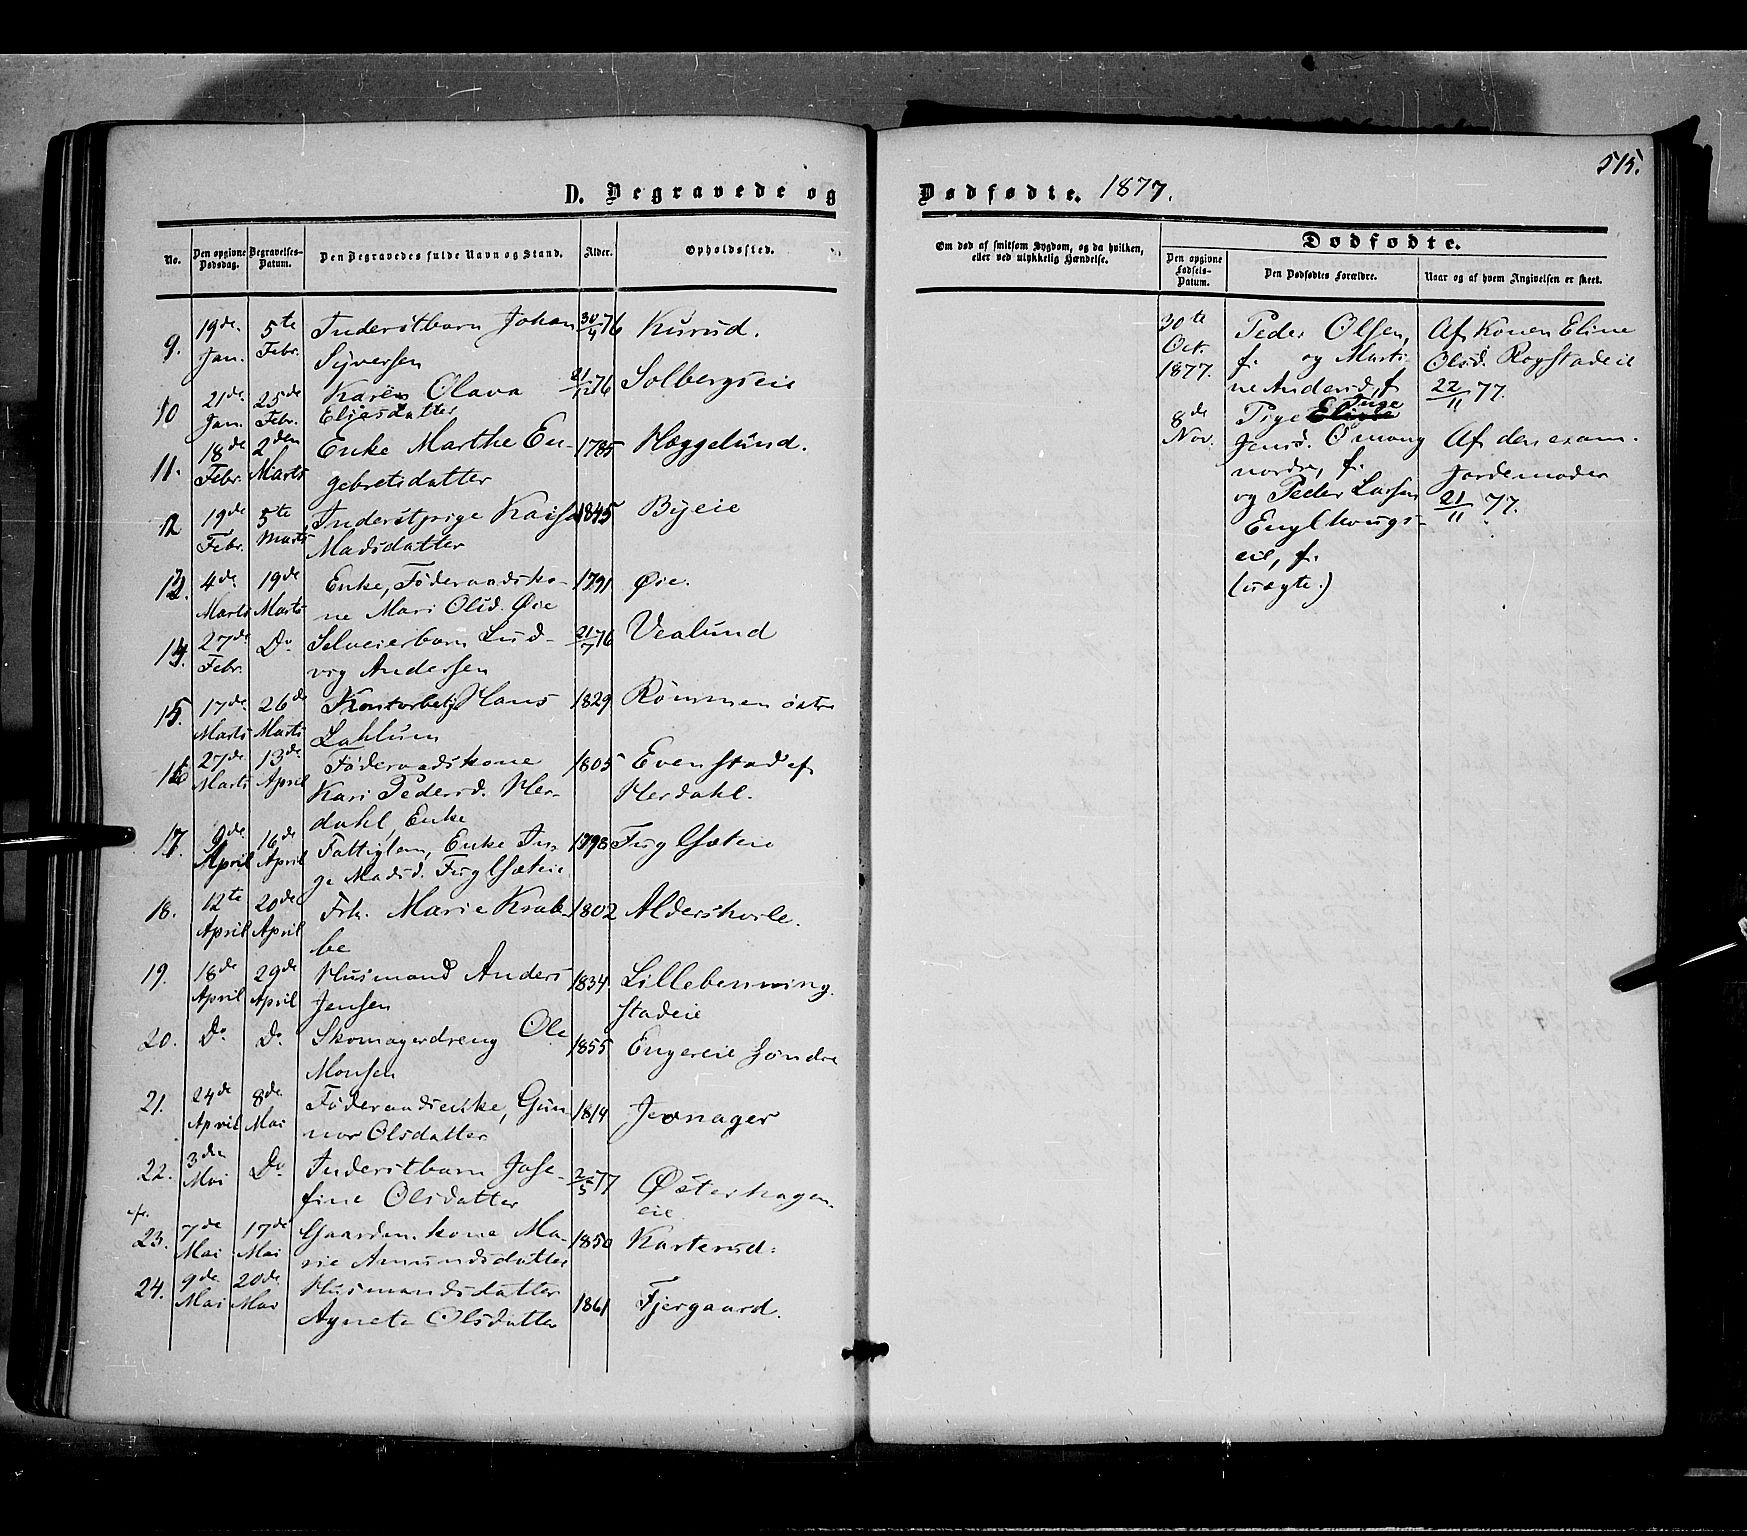 515.
D. Begravede og Dødfødte. 1877.
No.
Den opgivne Dødsdag.
Begravelses-Datum.
Den Begravedes fulde Navn og Stand.
Alder.
Opholdssted.
Om død af smitsom Sygdom, og da hvilken, eller ved ulykkelig Hændelse.
Dødfødte.
Den opgivne Fødsels-Datum.
Den Dødfødtes Forældre.
Naar og af hvem Angivelsen er skeet.
9. 19de Jan. 5te Febr. Inderstbarn Johan 30/4 76 Kurud.
Syversen
10 21de Jan. 25de Febr. Karen Olava 21/12 76 Solbergseie
Eliesdatter
11. 18de Febr. 2den Marts Enke Marthe En- 1785 Hæggelund.
gebretsdatter
12 19de Febr. 5te Marts Inderstpige Kaisa 1845 Byeie
Madsdatter
13. 4de Marts 19de Marts Enke, Föderaadsko- 1791 Øie.
ne Mari Olsd. Øie
14. 27de Febr. Do Selveierbarn Lud- 21/7 76 Vealund
vig Andersen
15. 17de Marts 26de Marts Kontorbetj. Hans 1829 Rømmen østre
Lahlum
16 27de Marts 13de April Föderaadskone 1805 Evenstad af
Kari Pedersd. Her- Herdahl.
dahl, Enke
17. 9de April 16de April Fattiglem, Enke In- 1798 Fuglsæteie
ge Madsd. Fuglsæteie
18. 12te April 20de April Frk. Marie Krab- 1802 Aldershvile.
be
19. 18de April 29de April Husmand Anders 1834 Lillebenning-
Jensen stadeie
20. Do Do Skomagerdreng Ole 1855 Engereie søndre
Monsen
21. 24de April 8de Mai Föderaadsenke, Gun- 1814 Jevnager
nor Olsdatter
22. 3de Mai Do Inderstbarn Jose- 2/3 77 Østerhagen-
fine Olsdatter eie
23. 7de Mai 17de Mai Gaardm. kone Ma- 1850 Karterud:
rie Amundsdatter
24. 9de Mai 20de Mai Husmandsdatter
Agnete Olsdatter 1861 Fjergaard.
30te Oct. 1877. Peder Olsen, Af Konen Eline
f. og Marti- Olsd. Rogstadeie
ne Andersd., f. 22/11 77.
8de Nov. Pige Inge
Jensd. Ømang Af den exam.
nordre, f. Jordemoder
og Peder Larsen 21/11 77.
Englhougs-
eie, f.
(uægte.)